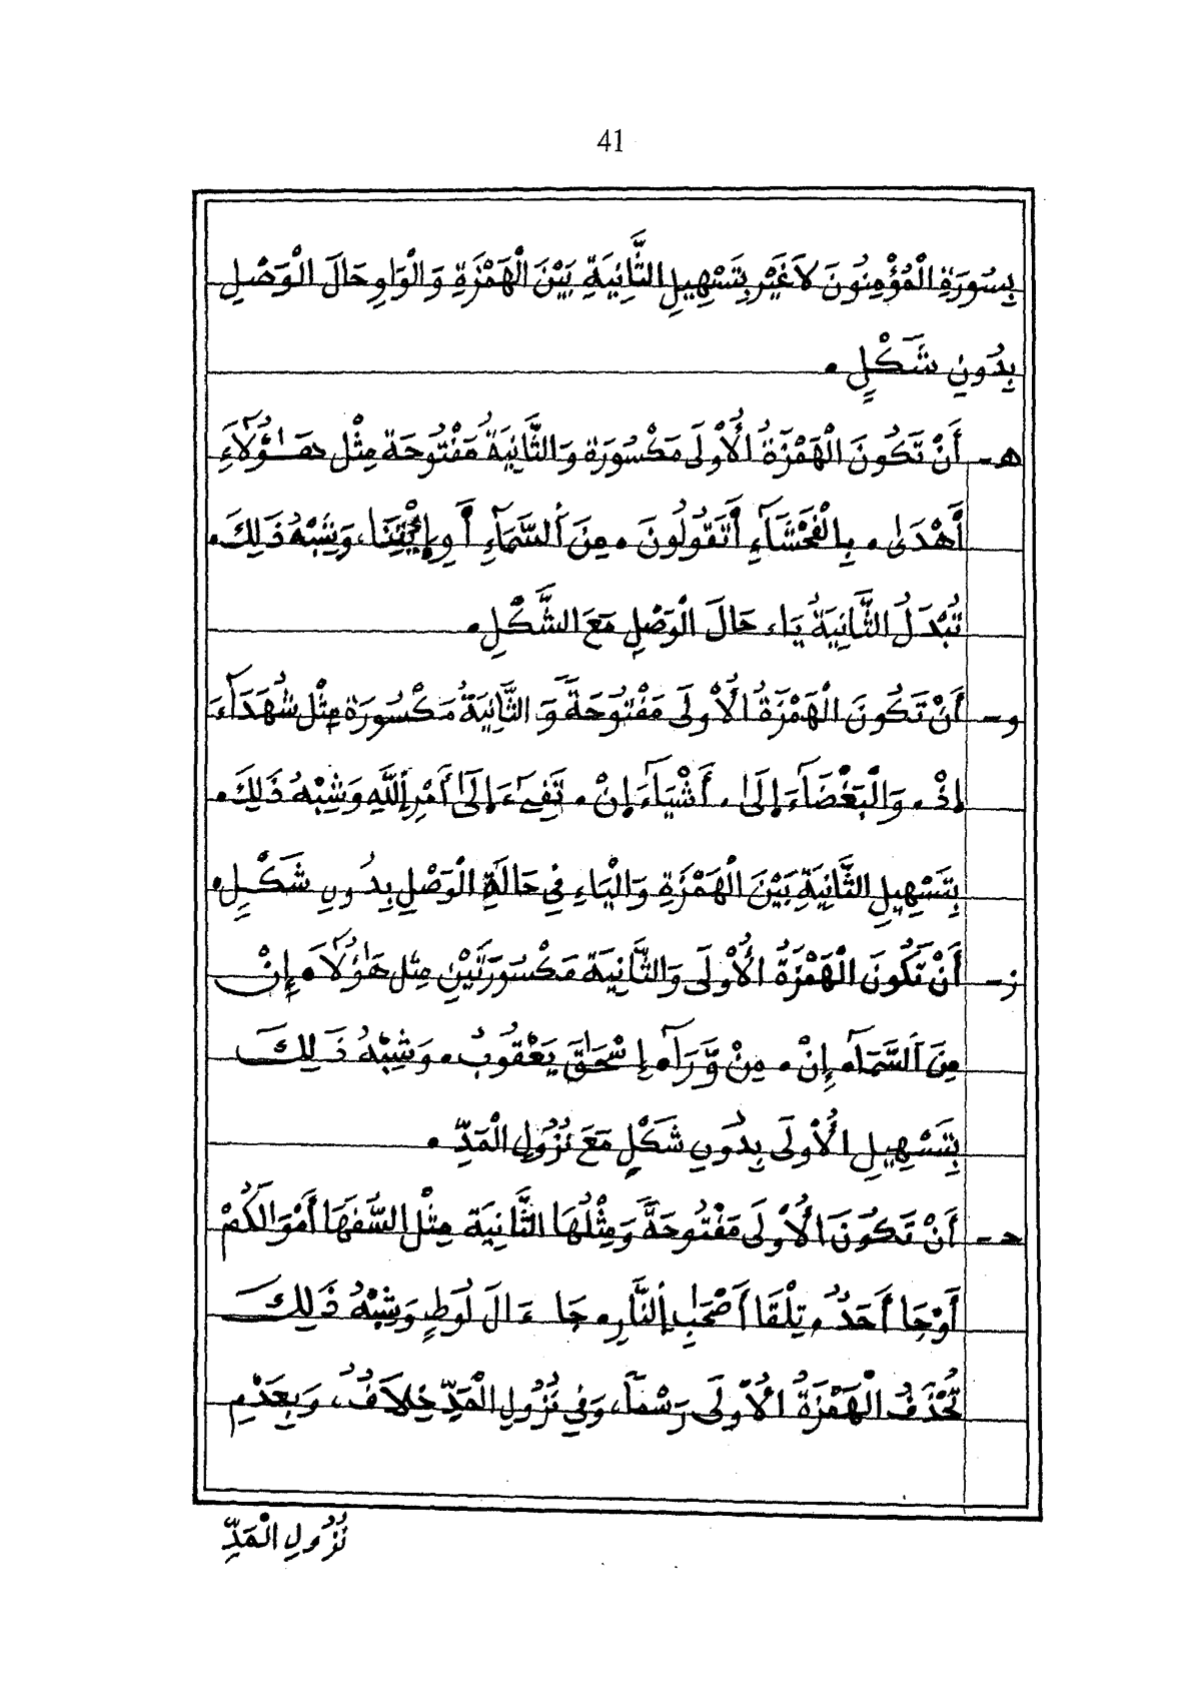 41
بِسُورَةِ الْمُؤْمِنُونَ لاَغَيْرِ بِتَسْهِيلِ الثَّانِيَةِ بَيْنَ الْهَمْزَةِ وَالْوَاوِ حَالَ الْوَصْلِ
بِدُونِ شَكْلٍ .
هـ - أَنْ تَكُونَ الْهَمْزَةُ الْأُولَى مَكْسُورَة وَالثَّانِيَةُ مَفْتُوحَة مِثْل هَـٰؤُلَآءِ
أَهْدَىٰ . بِالْفَحْشَآءِ أَتَقُولُونَ . مِنَ ٱلسَّمَآءِ أَوِ ٱئْتِنَا، وَشِبْهُ ذَلِكَ .
تُبْدَلُ الثَّانِيَةُ يَاء حَالَ الْوَصْلِ مَعَ الشَّكْلِ .
و - أَنْ تَكُونَ الْهَمْزَةُ الْأُولَى مَفْتُوحَةً وَالثَّانِيَةُ مَكْسُورَة مِثْل شُهَدَآءَ
إِذْ . وَالْبَغْضَآءَ إِلَىٰ . أَشْيَآءَ إِنْ . تَفِىٓءَ إِلَىٰٓ أَمْرِ ٱللَّهِ وَشِبْهُ ذَلِكَ .
بِتَسْهِيلِ الثَّانِيَةِ بَيْنَ الْهَمْزَةِ وَالْيَاءِ فِي حَالَةِ الْوَصْلِ بِدُونِ شَكْلٍ .
ز - أَنْ تَكُونَ الْهَمْزَةُ الْأُولَى وَالثَّانِيَة مَكْسُورَتَيْنِ مِثْل هَـٰؤُلَآ . إِنْ
مِنَ ٱلسَّمَآ . إِنْ . مِنْ وَّرَآ . إِسْحَـٰقَ يَعْقُوبُ . وَشِبْهُ ذَلِكَ
بِتَسْهِيلِ الْأُولَى بِدُونِ شَكْلٍ مَعَ نُزُولِ الْمَدِّ .
حـ - أَنْ تَكُونَ الْأُولَى مَفْتُوحَةً وَمِثْلُهَا الثَّانِيَة مِثْل السُّفَهَا أَمْوَالَكُمْ
أَوْجَا أَحَدٌ . تِلْقَا أَصْحَـٰبِ ٱلنَّارِ . جَا ءَالَ لُوطٍ وَشِبْهُ ذَلِكَ
تُحْذَفُ الْهَمْزَةُ الْأُولَى رَسْماً، وَفِي نُزُولِ الْمَدِّ خِلاَفٌ، وَبِعَدَمِ
نُزُولِ الْمَدِّ